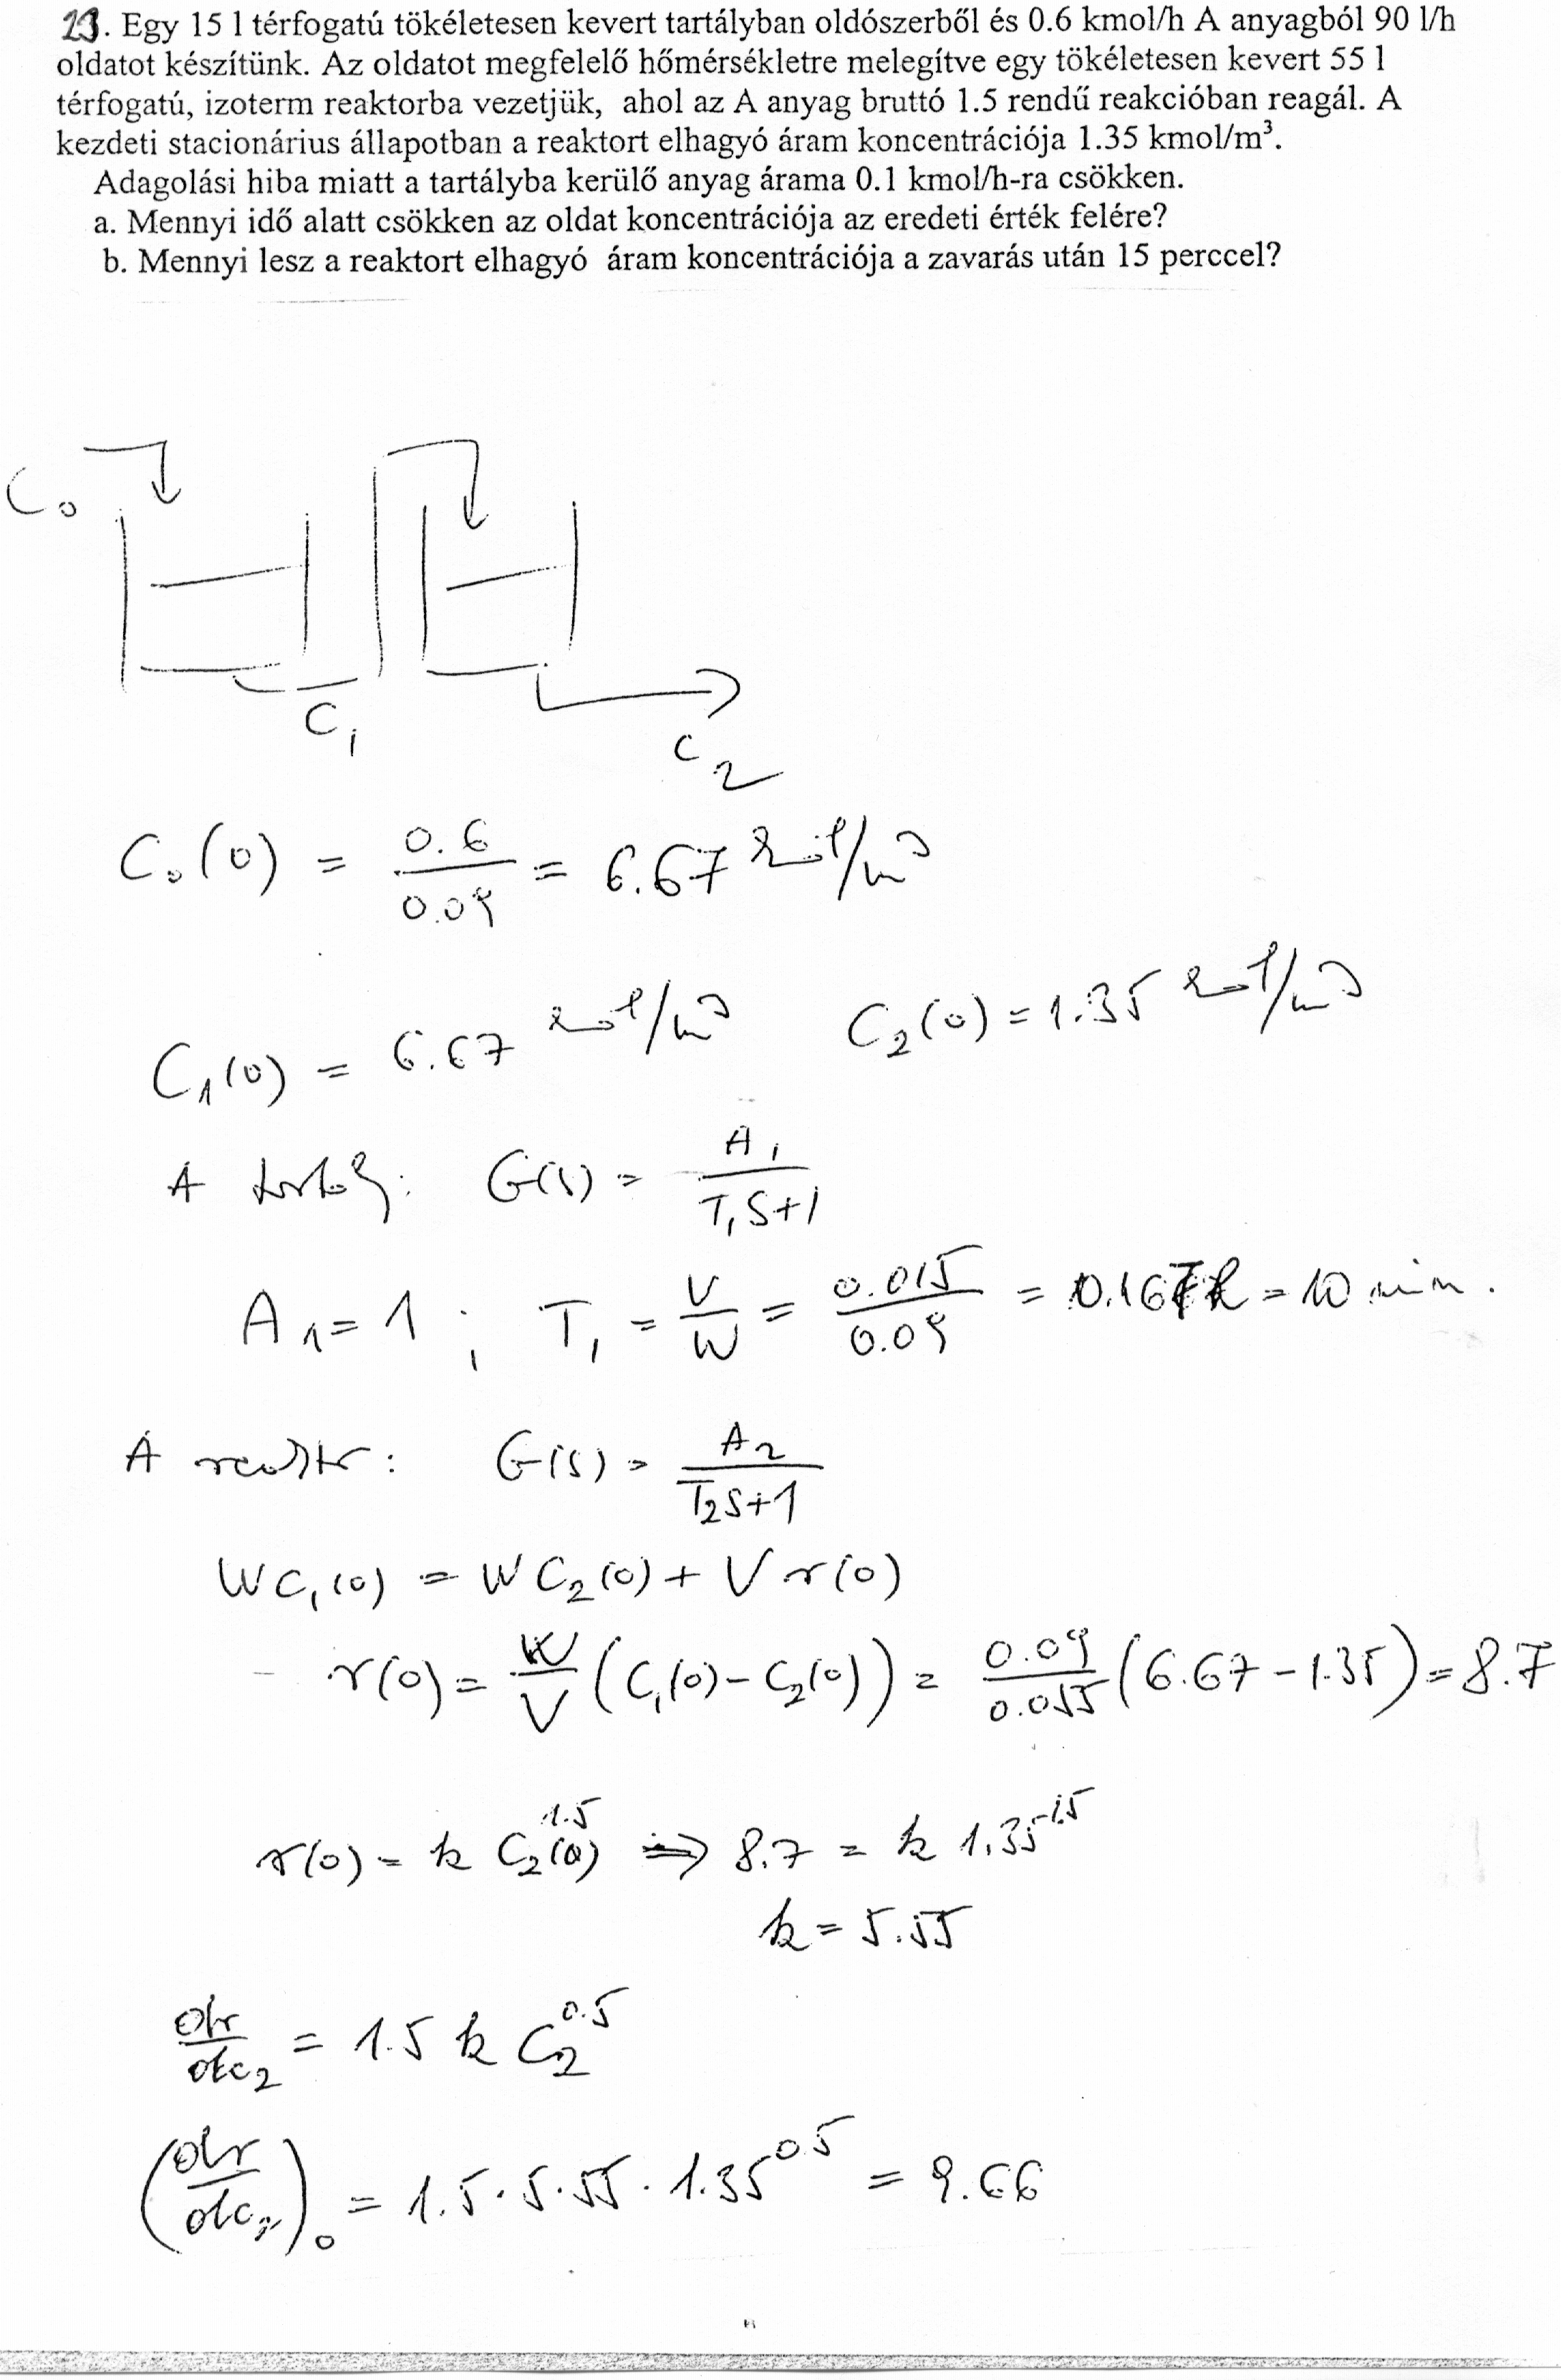 23. Egy 15 l térfogatú tökéletesen kevert tartályban oldószerből és 0.6 kmol/h A anyagból 90 l/h
oldatot készítünk. Az oldatot megfelelő hőmérsékletre melegítve egy tökéletesen kevert 55 l
térfogatú, izoterm reaktorba vezetjük, ahol az A anyag bruttó 1.5 rendű reakcióban reagál. A
kezdeti stacionárius állapotban a reaktort elhagyó áram koncentrációja 1.35 kmol/m³.
Adagolási hiba miatt a tartályba kerülő anyag árama 0.1 kmol/h-ra csökken.
a. Mennyi idő alatt csökken az oldat koncentrációja az eredeti érték felére?
b. Mennyi lesz a reaktort elhagyó áram koncentrációja a zavarás után 15 perccel?
C₀
C₁
C₂
C₀(0) = 0.6/0.09 = 6.67 kmol/m³
C₁(0) = 6.67 kmol/m³ C₂(0) = 1.35 kmol/m³
A tartály: G(s) = A₁/(T₁s+1)
A₁ = 1 ; T₁ = V/W = 0.015/0.09 = 0.167h = 10 min.
A reaktor: G(s) = A₂/(T₂s+1)
WC₁(0) = WC₂(0) + Vr(0)
r(0) = W/V (C₁(0) - C₂(0)) = 0.09/0.055 (6.67 - 1.35) = 8.7
r(0) = k C₂(0)^1.5 ⇒ 8.7 = k 1.35^1.5
k = 5.55
dr/dc₂ = 1.5 k C₂^0.5
(dr/dc₂)₀ = 1.5 · 5.55 · 1.35^0.5 = 9.66